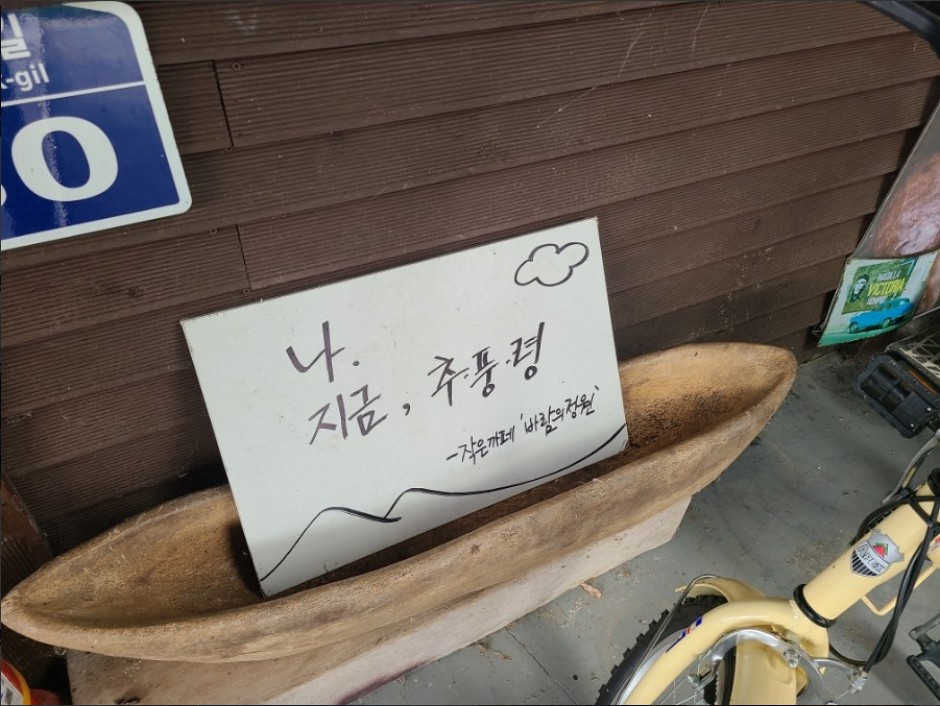 일
-gil
0
나.
지금, 추·풍·령
-작은까페 '바람의정원'
VICTORIA